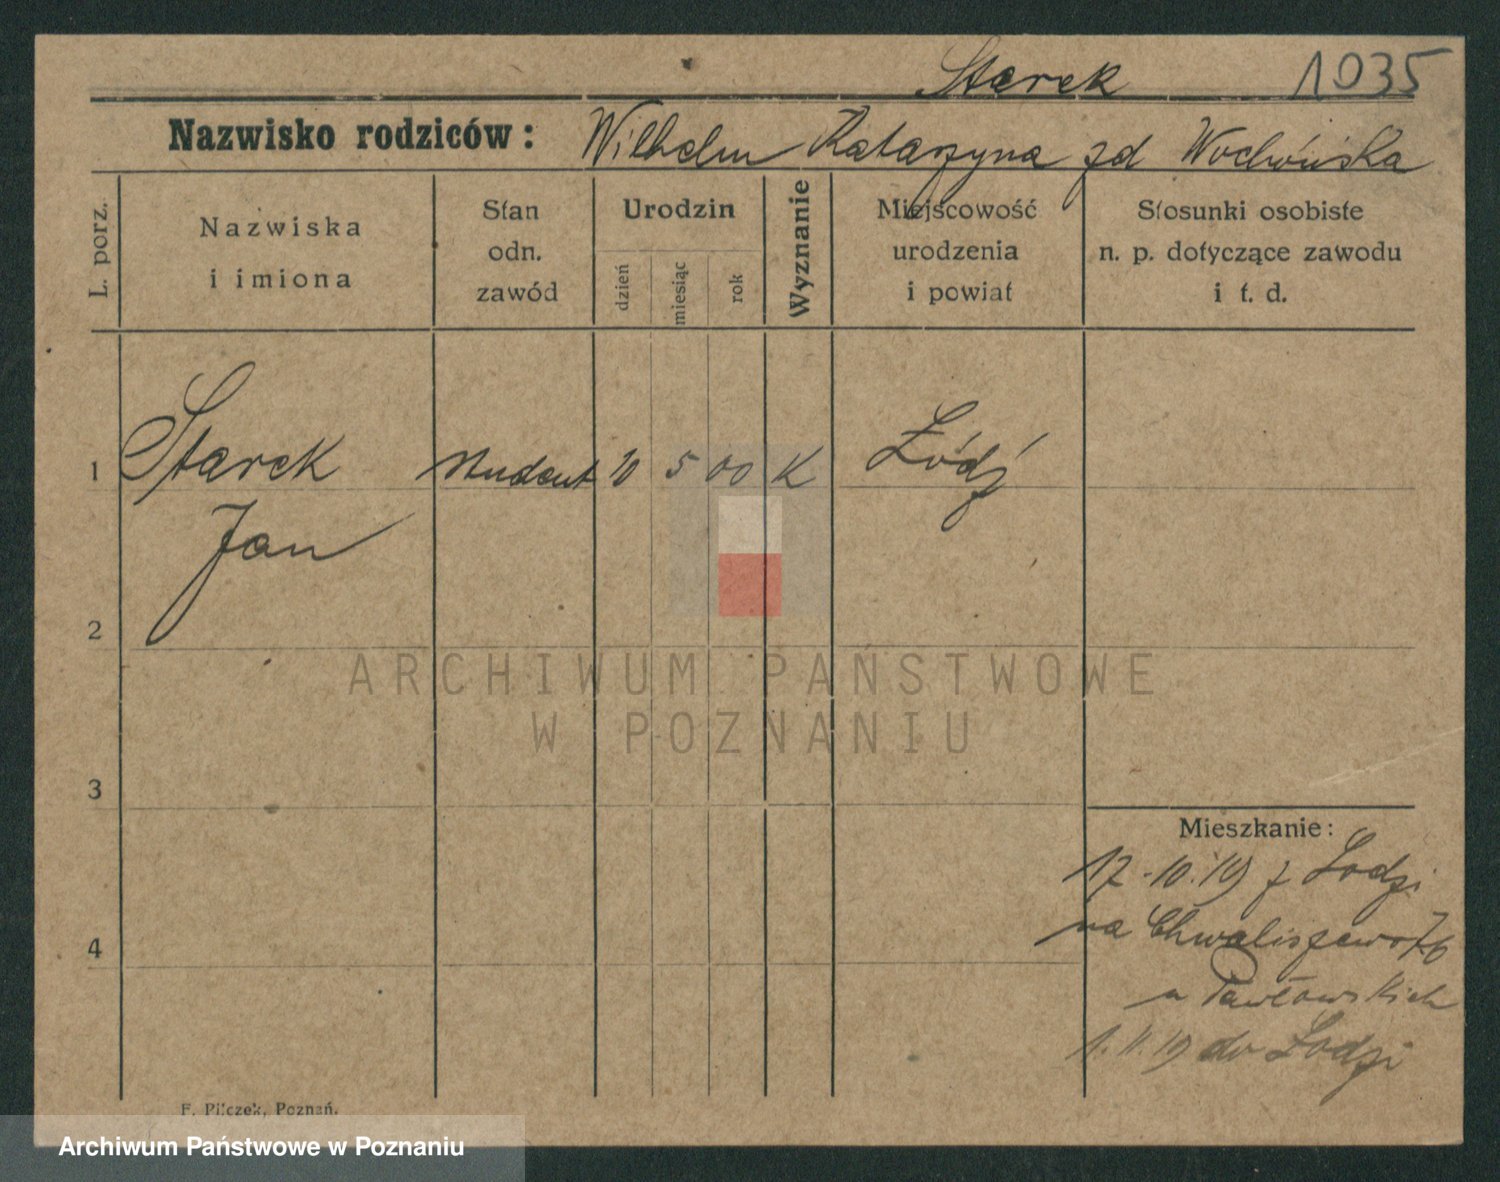 Starek 1035
Nazwisko rodziców: Wilhelm Katarzyna zd
L. porz.
Nazwiska
i imiona
Stan
odn.
zawód
Urodzin
dzień
miesiąc
rok
Wyznanie
Miejscowość
urodzenia
i powiat
Stosunki osobiste
n. p. dotyczące zawodu
i t. d.
1 Starek student 10 5 00 K Łódź
Jan
2
ARCHIWUM PAŃSTWOWE
W POZNANIU
3
Mieszkanie:
17-10.19 z Lodzi
4
na Chwaliszewo 76
u Pawłowskich
1.11.19 do Lodzi
F. Pilczek, Poznań.
Archiwum Państwowe w Poznaniu